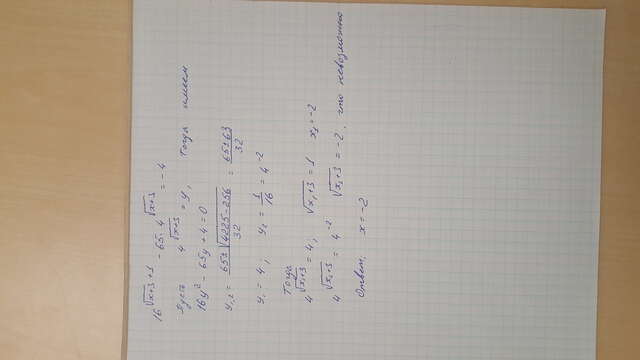 16^{√x+3 + 1} - 65·4^{√x+3} = -4
Пусть 4^{√x+3} = y, тогда имеем
16y² - 65y + 4 = 0
y₁,₂ = 65±√4225-256 / 32 = 65±63 / 32
y₁ = 4; y₂ = 1/16 = 4^{-2}
Тогда
4^{√x₁+3} = 4; √x₁+3 = 1 x₁ = -2
4^{√x₂+3} = 4^{-2} √x₂+3 = -2, что невозможно
Ответ. x = -2